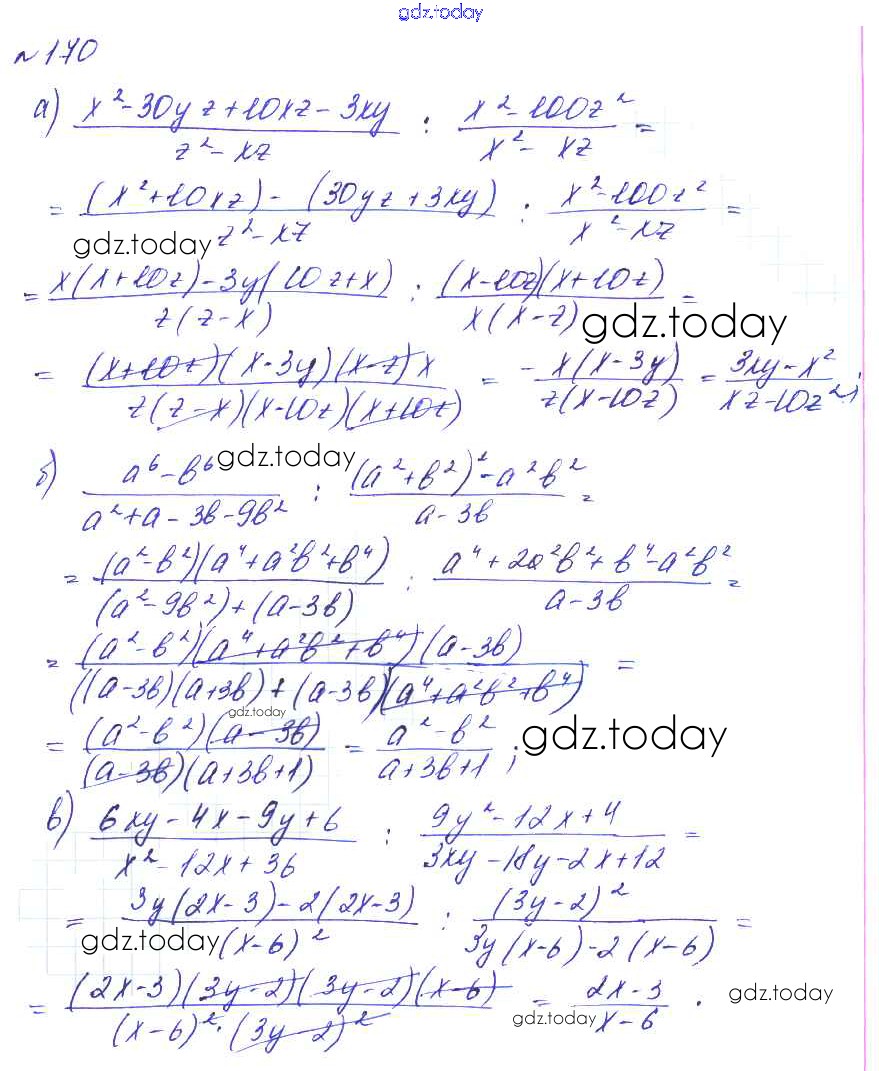 gdz.today
№170
а) (x²-30yz+10xz-3xy)/(z²-xz) : (x²-100z²)/(x²-xz) =
= ((x²+10xz)-(30yz+3xy))/(z²-xz) : (x²-100z²)/(x²-xz) =
gdz.today
= (x(x+10z)-3y(10z+x))/(z(z-x)) : ((x-10z)(x+10z))/(x(x-z)) =
gdz.today
= ((x+10z)(x-3y)(x-z)x)/(z(z-x)(x-10z)(x+10z)) = -(x(x-3y))/(z(x-10z)) = (3xy-x²)/(xz-10z²);
gdz.today
б) (a⁶-b⁶)/(a²+a-3b-9b²) : ((a²+b²)²-a²b²)/(a-3b) =
= ((a²-b²)(a⁴+a²b²+b⁴))/((a²-9b²)+(a-3b)) : (a⁴+2a²b²+b⁴-a²b²)/(a-3b) =
= ((a²-b²)(a⁴+a²b²+b⁴)(a-3b))/(((a-3b)(a+3b)+(a-3b)(a⁴+a²b²+b⁴)) =
gdz.today
= ((a²-b²)(a-3b))/((a-3b)(a+3b+1)) = (a²-b²)/(a+3b+1);
gdz.today
в) (6xy-4x-9y+6)/(x²-12x+36) : (9y²-12x+4)/(3xy-18y-2x+12) =
= (3y(2x-3)-2(2x-3))/((x-6)²) : ((3y-2)²)/(3y(x-6)-2(x-6)) =
gdz.today
= ((2x-3)(3y-2)(3y-2)(x-6))/((x-6)²·(3y-2)²) = (2x-3)/(x-6).
gdz.today
gdz.today